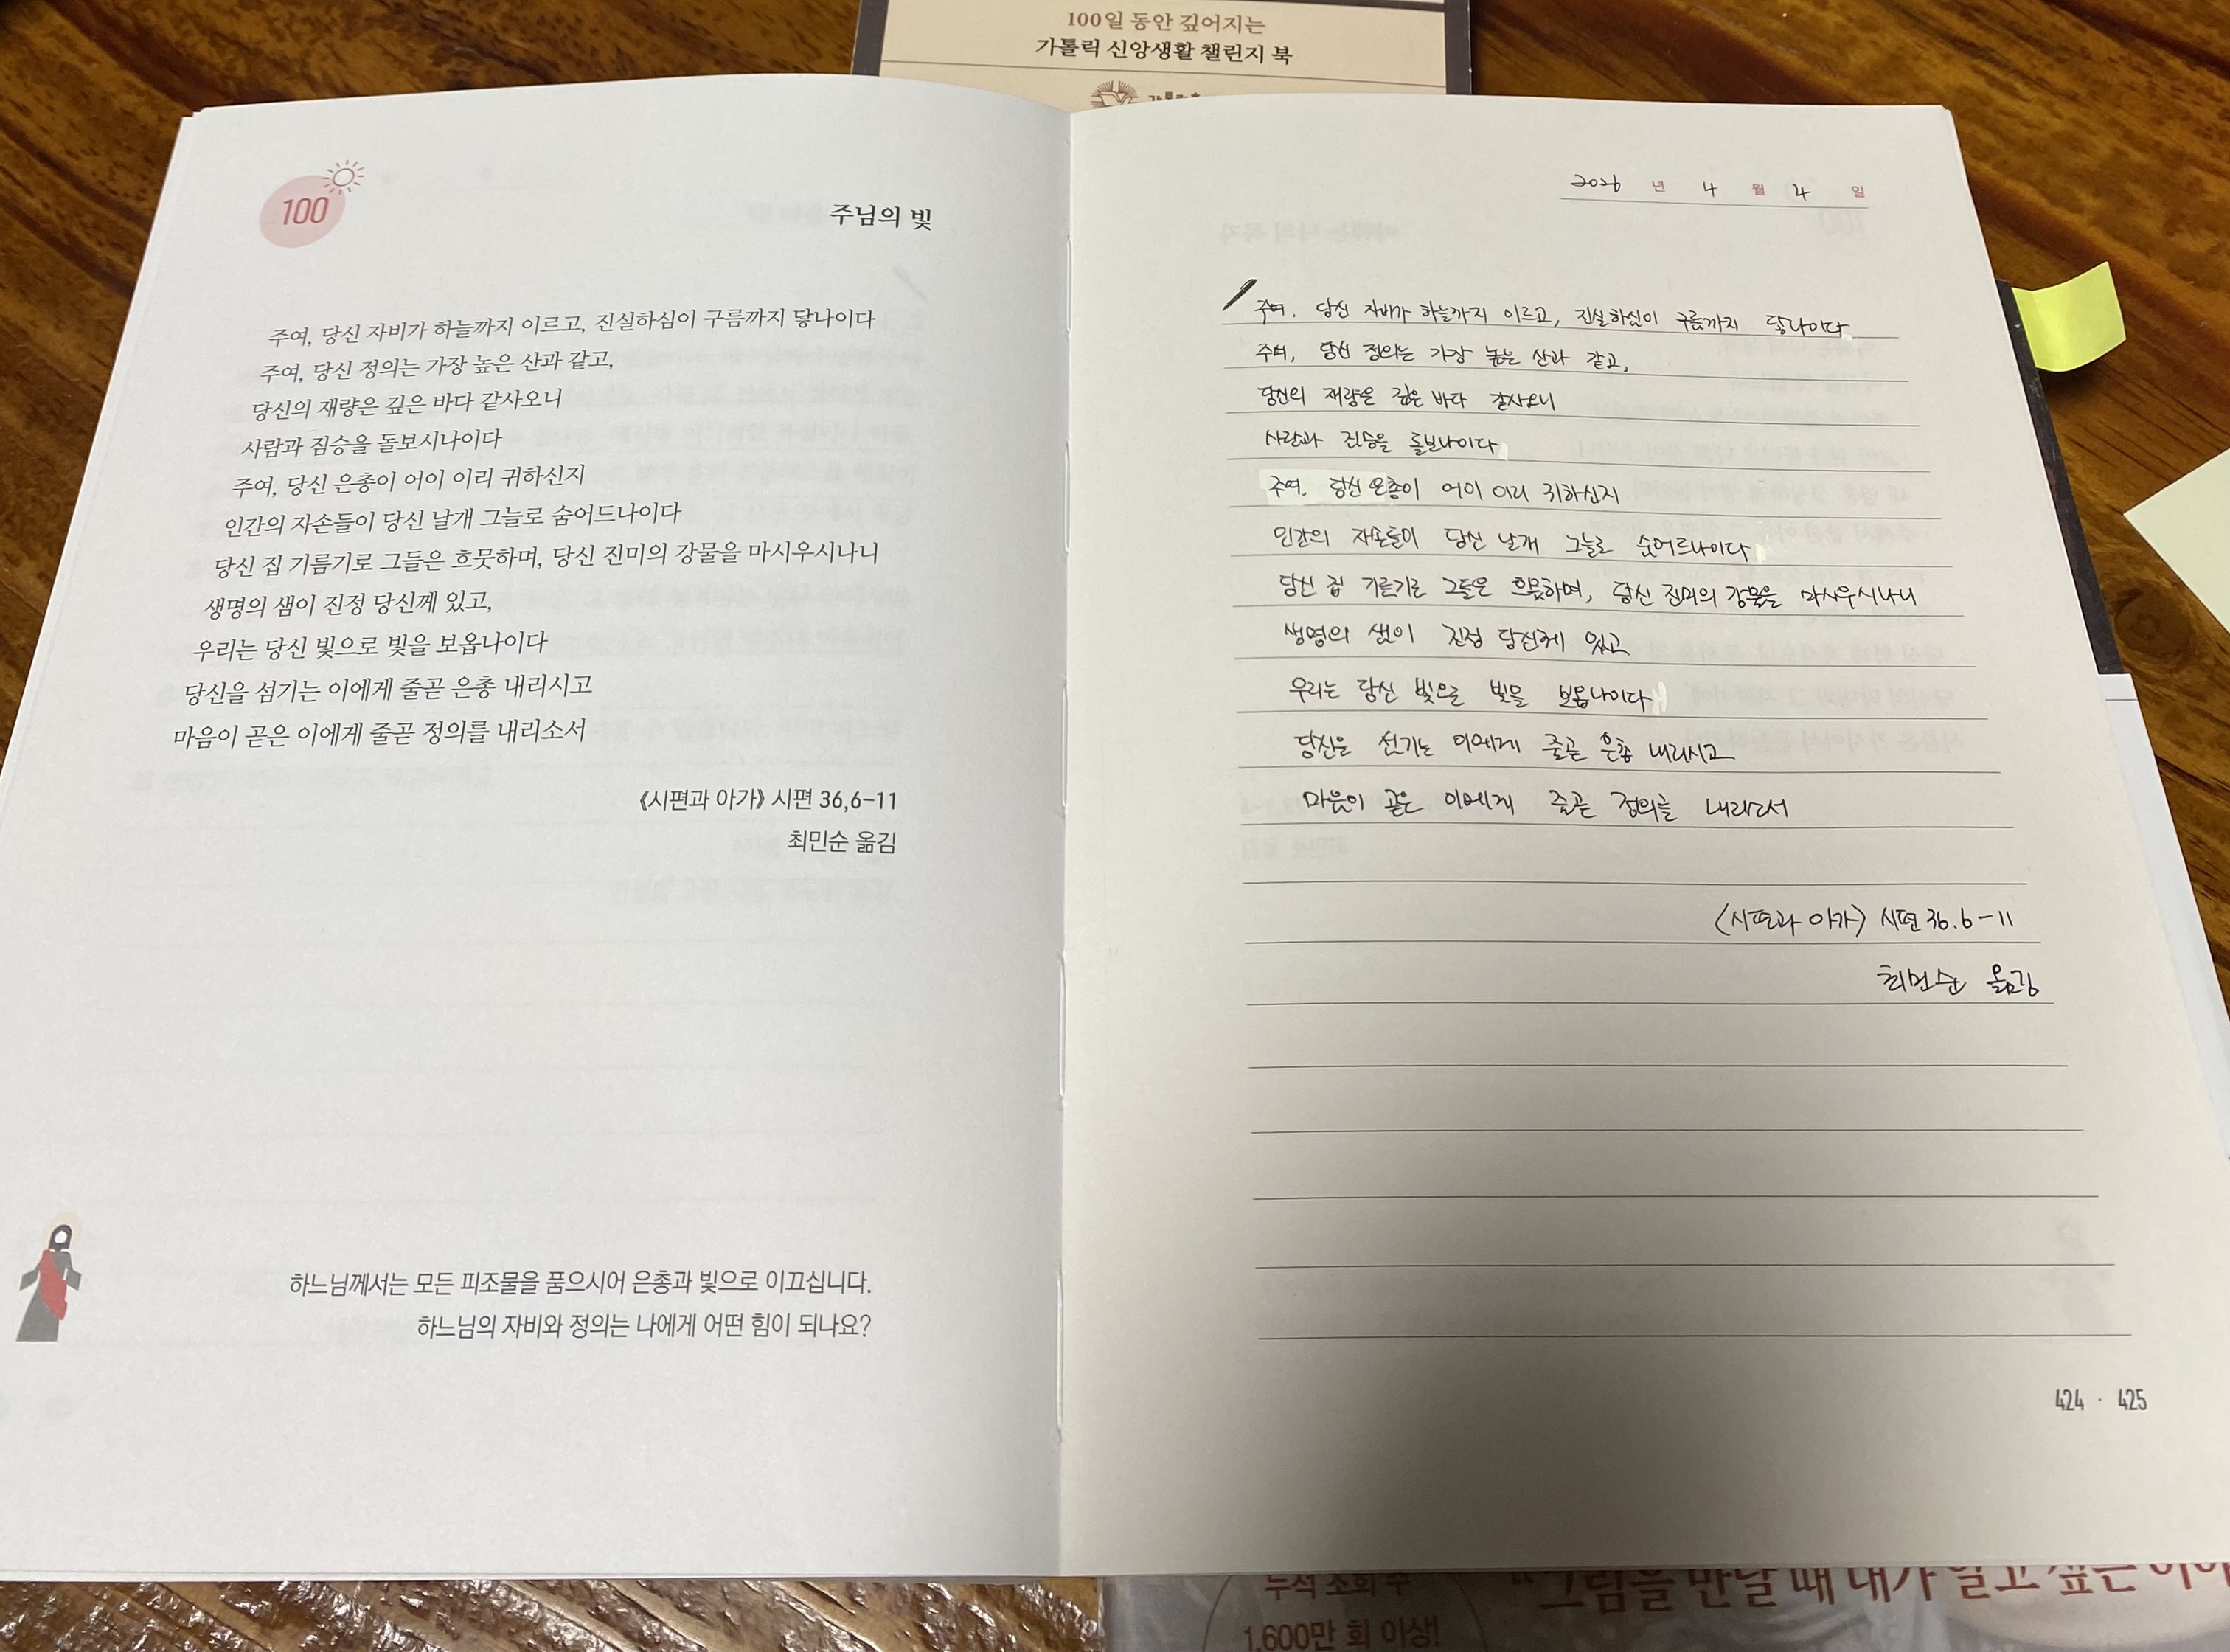 100일 동안 깊어지는
가톨릭 신앙생활 챌린지 북
100
주님의 빛
주여, 당신 자비가 하늘까지 이르고, 진실하심이 구름까지 닿나이다
주여, 당신 정의는 가장 높은 산과 같고,
당신의 재량은 깊은 바다 같사오니
사람과 짐승을 돌보시나이다
주여, 당신 은총이 어이 이리 귀하신지
인간의 자손들이 당신 날개 그늘로 숨어드나이다
당신 집 기름기로 그들은 흐뭇하며, 당신 진미의 강물을 마시우시나니
생명의 샘이 진정 당신께 있고,
우리는 당신 빛으로 빛을 보옵나이다
당신을 섬기는 이에게 줄곧 은총 내리시고
마음이 곧은 이에게 줄곧 정의를 내리소서
《시편과 아가》 시편 36,6–11
최민순 옮김
하느님께서는 모든 피조물을 품으시어 은총과 빛으로 이끄십니다.
하느님의 자비와 정의는 나에게 어떤 힘이 되나요?
2026 년 4 월 4 일
주여. 당신 자비가 하늘까지 이르고, 진실하심이 구름까지 닿나이다
주여, 당신 정의는 가장 높은 산과 같고,
당신의 재량은 깊은 바다 같사오니
사람과 짐승을 돌보나이다
주여. 당신 은총이 어이 이리 귀하신지
인간의 자손들이 당신 날개 그늘로 숨어드나이다
당신 집 기름기로 그들은 흐뭇하며, 당신 진미의 강물을 마시우시나니
생명의 샘이 진정 당신께 있고
우리는 당신 빛으로 빛을 보옵나이다
당신은 섬기는 이에게 줄곧 은총 내리시고
마음이 곧은 이에게 줄곧 정의를 내리소서
〈시편과 아가〉 시편 36.6-11
최민순 옮김
424 · 425
누적 조회 수
1,600만 회 이상!
“그림을 만날 때 내가 알고 싶은